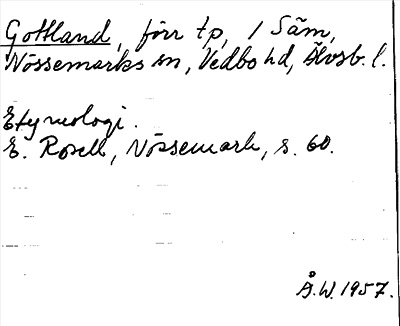 Gottland, förr tp, / Säm,
Nössemarks sn, Vedbo hd, Älvsb. l.
Etymologi.
E. Rosell, Nössemark, s. 60.
Å.W. 1957.